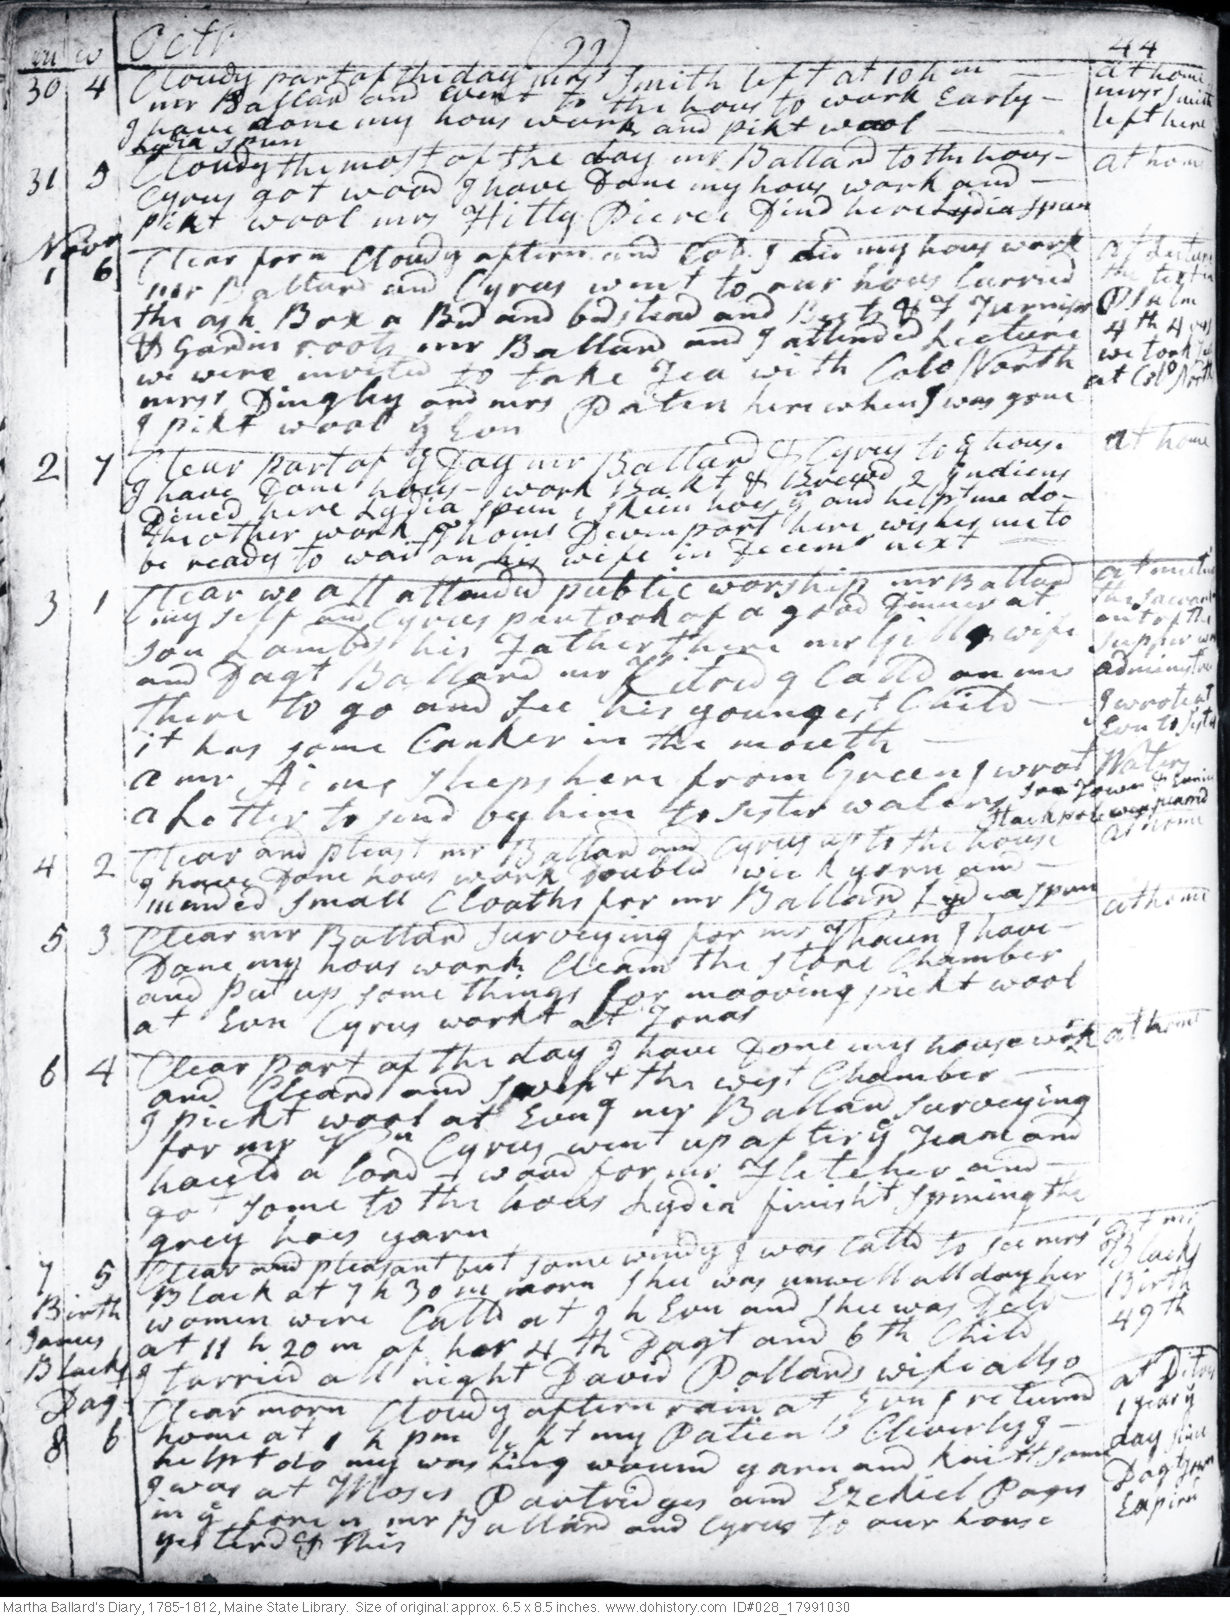 m w Octr (22) 44
30 4 Cloudy part of the day mrs Smith left at 10 h m
mr Ballard and went to the hous to work Early
I have done my hous work and pikt wool
Lydia spun
at home
mrs Smith
left here
31 5 Cloudy the most of the day mr Ballard to the hous
Cyrus got wood I have Done my hous work and
pikt wool mrs Hitty Pierce Dind here Lydia spun
at home
Novr
1 6 Clear forn Cloudy aftern and Cold I did my hous work
mr Ballard and Cyrus went to our hous Carried
the ash Box a Bed and bedstead and Beets &
& Gardin roots mr Ballard and I attended Lecture
we were invited to take Tea with Colo North
mrss Dingley and mrs Paten here when I was gone
I pikt wool y Evn
at Lecture
the text in
Psalm
4th 4 vrs
we took Tea
at Colo North
2 7 Clear part of y Day mr Ballard & Cyrus to y house
I have Done hous work Bakt & Brewd 2 Indiens
Dined here Lydia spun 1 skein hoes y and helpt me do
the other work Thomas Devenport here wishes me to
be ready to wait on his wife in Decemr next
at home
3 1 Clear we all attended public worship mr Ballard
my self and Cyrus partook of a good Dinner at
son Lambds his Father there mr Gill & wife
and Dagt Ballard mr Kitredg Calld on me
there to go and see his youngest Child
it has some Canker in the mouth
a mr Aims sleeps here from Green I wrot
a Letter to send by him to Sister Waters
at meeting
the sacrament
of the
supper was
administerd
I wrote at
Evn to Sister
Waters
son Town &
were
4 2 Clear and pleast mr Ballard and Cyrus up to the house
I have Done hous work doubld wick yarn and
mended small Cloaths for mr Ballard Lydia spun
at home
5 3 Clear mr Ballard surveying for mr Vhaun I have
Done my hous work Cleand the store Chamber
and put up some things for mooving pickt wool
at Evn Cyrus workt at Jonas
at home
6 4 Clear part of the day I have Done my house work
and Cleard and swept the west Chamber
I pickt wool at Evng mr Ballard surveying
for mr Vn Cyrus went up after y Team and
hauld a load wood for mr Fletcher and
got some to the hous Lydia finisht spining the
grey hoes yarn
at home
7 5 Clear and pleasant but some windy I was Calld to see mrs
Black at 7 h 30 m morn shee was unwell all day her
women were Calld at 9 h Evn and shee was Deld
at 11 h 20 m of her 4 th Dagt and 6 th Child
I tarried all night David Pollards wife allso
Birth
James
Blacks
Dag
at mr
Blacks
Birth
49th
8 6 Clear morn Cloudy aftern rain at Evn I returnd
home at 1 h pm left my Patient Cleverly I
helpt do my washing wound yarn and knitt some
I was at Moses Partridges and Ezekiel Pages
in y foren mr Ballard and Cyrus to our house
yesterd & this
at Ditos
1 year y
day since
Dagt Town
Expird
Martha Ballard's Diary, 1785-1812, Maine State Library. Size of original: approx. 6.5 x 8.5 inches. www.dohistory.com ID#028_17991030